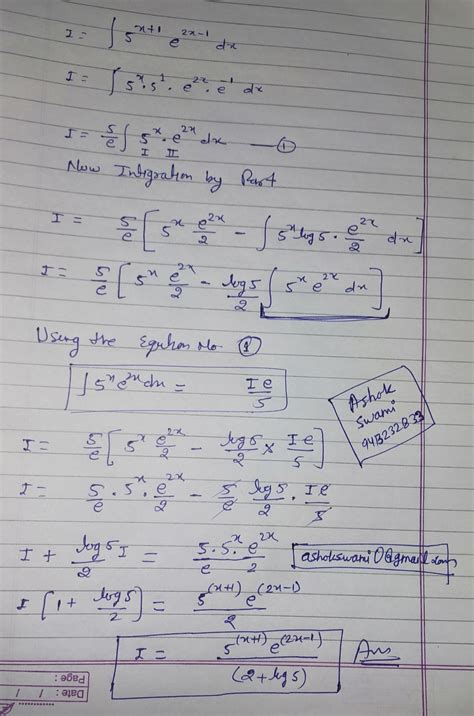 I = ∫ 5^(x+1) e^(2x-1) dx
I = ∫ 5^x · 5^1 · e^(2x) · e^(-1) dx
I = 5/e ∫ 5^x · e^(2x) dx — ①
I II
Now Intigration by Part
I = 5/e [ 5^x e^(2x)/2 - ∫ 5^x log 5 · e^(2x)/2 dx ]
I = 5/e [ 5^x e^(2x)/2 - log 5/2 ∫ 5^x e^(2x) dx ]
Using the No ①
∫ 5^x e^(2x) dx = Ie/5
Ashok
Swami
I = 5/e [ 5^x e^(2x)/2 - log 5/2 × Ie/5 ]
I = 5/e · 5^x · e^(2x)/2 - 5/e log 5/2 · Ie/5
I + log 5/2 I = 5·5^x/e e^(2x)/2
ashokswami0@gmail.com
I [ 1 + log 5/2 ] = 5^(x+1) e^(2x-1)/2
I = 5^(x+1) e^(2x-1)/(2 + log 5) Ans
Page :
Date : / /